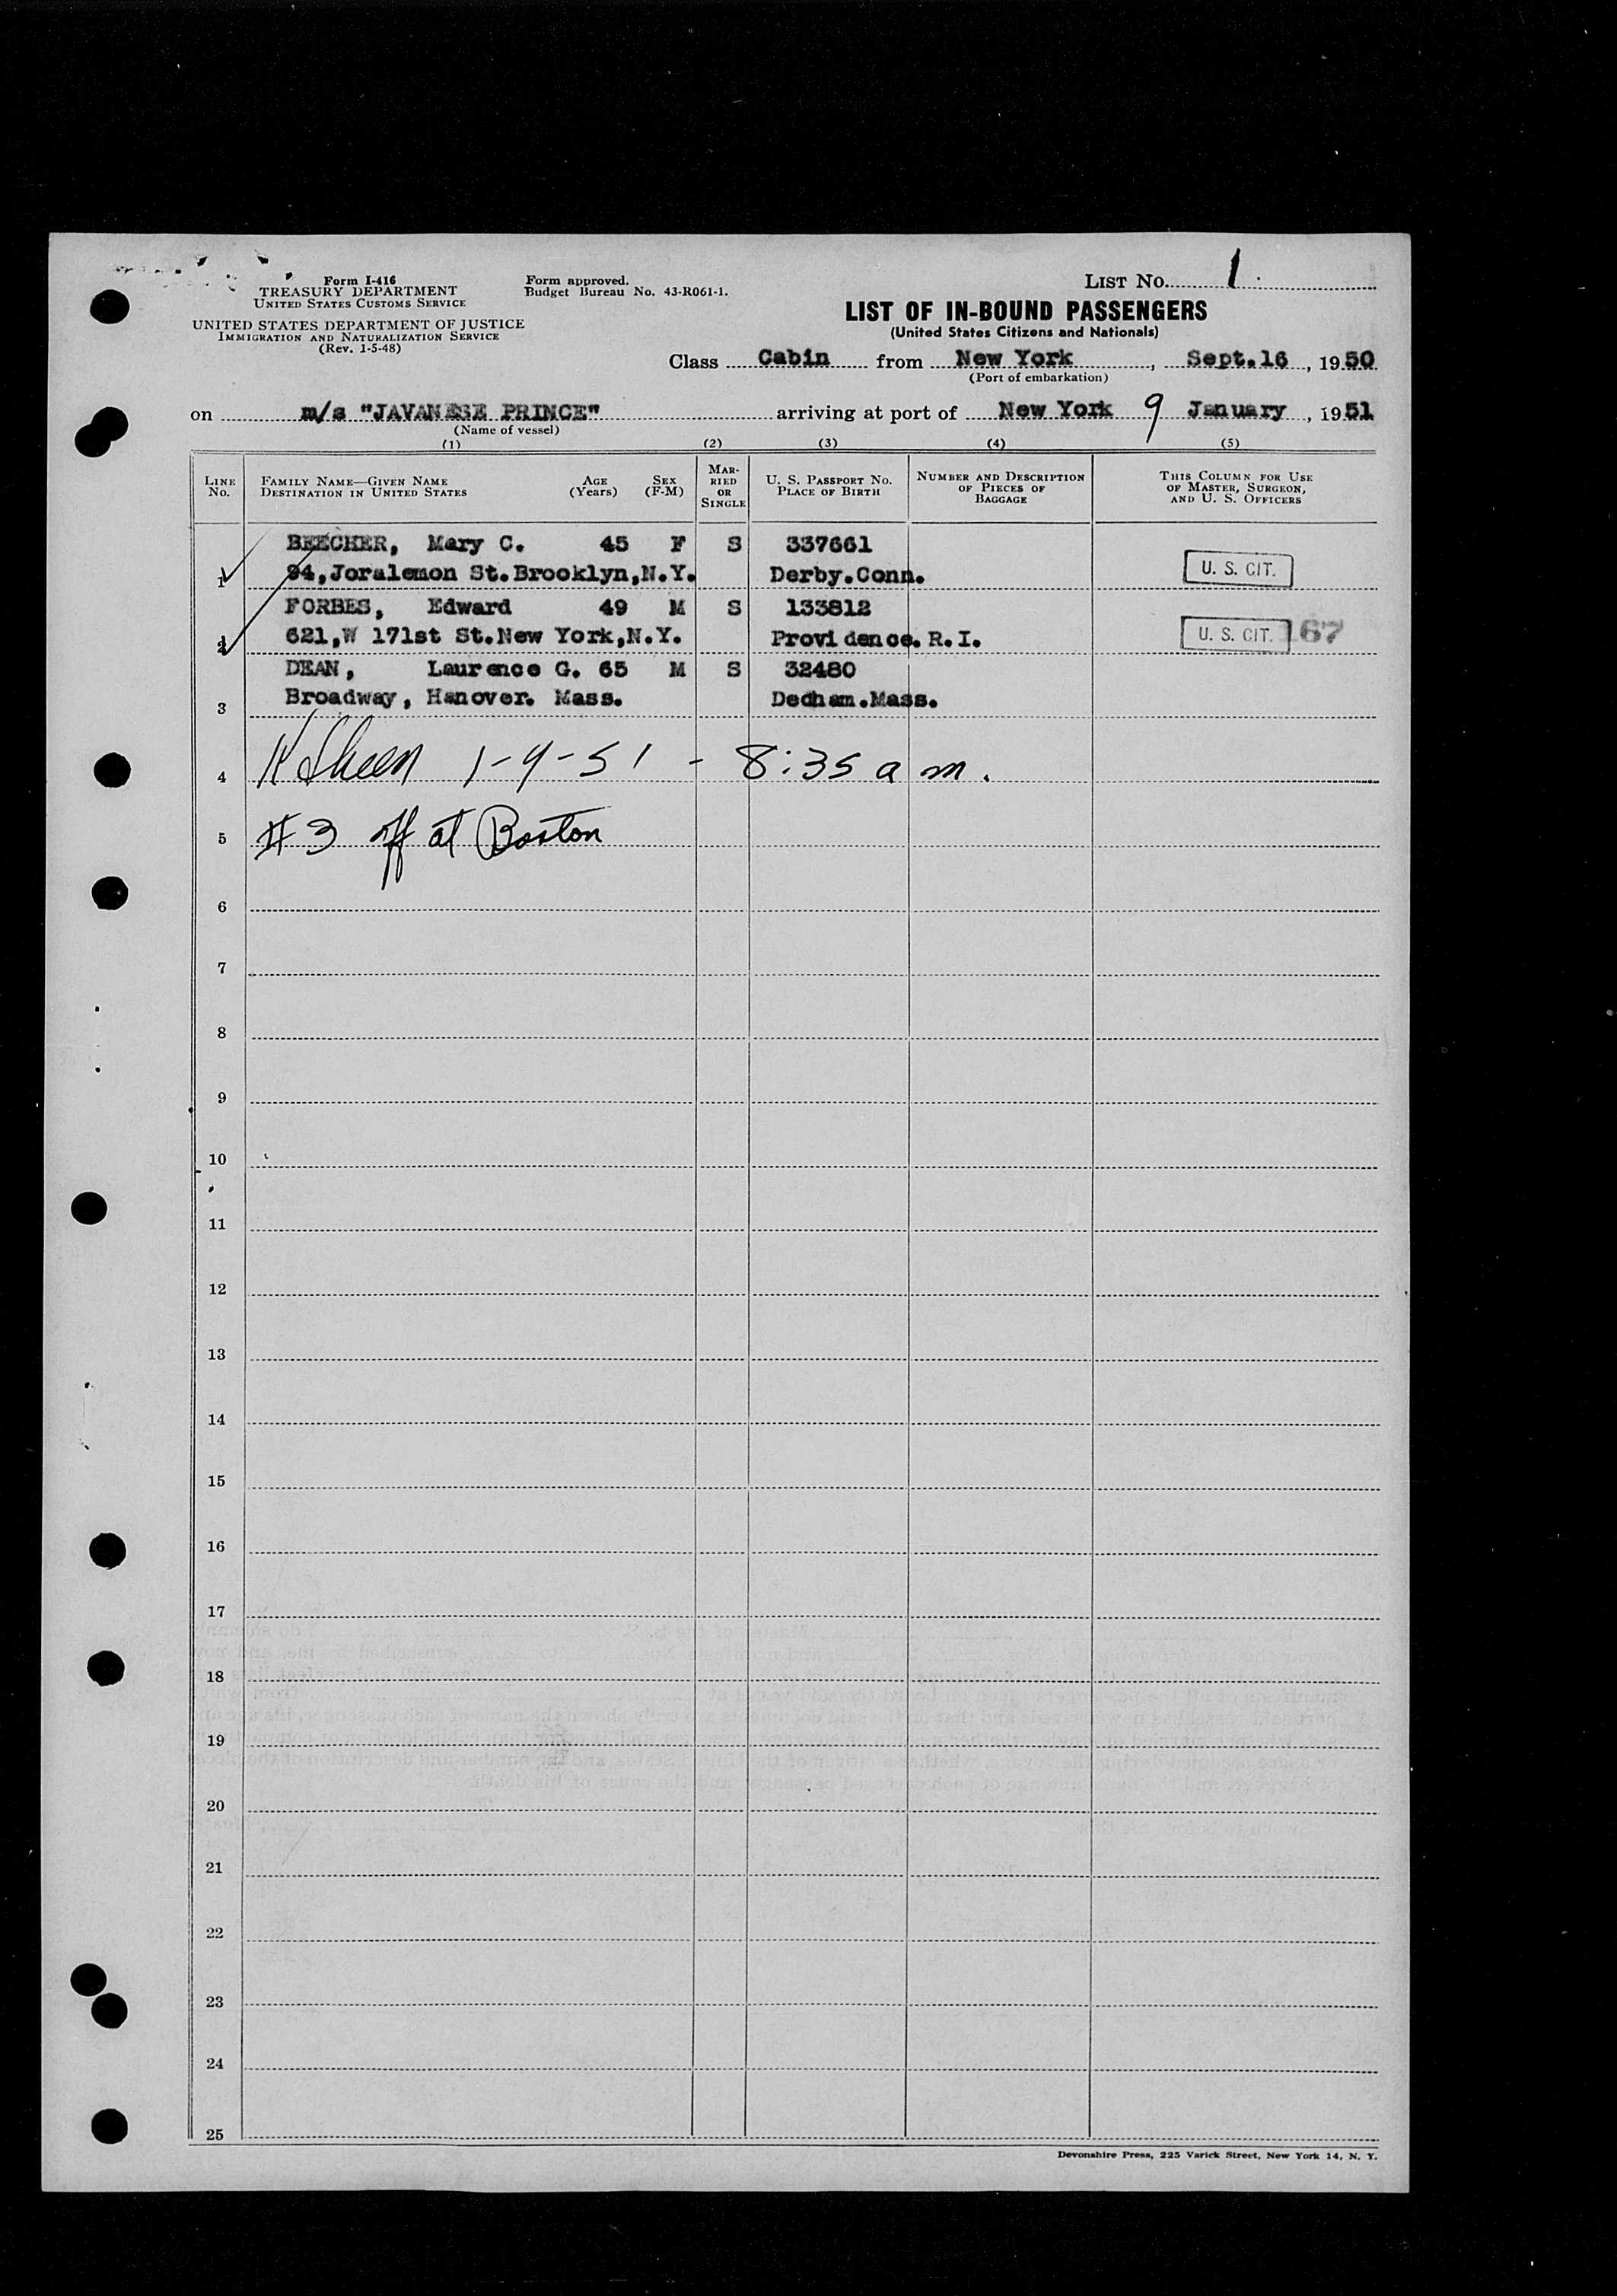 Form I-416
TREASURY DEPARTMENT
UNITED STATES CUSTOMS SERVICE
UNITED STATES DEPARTMENT OF JUSTICE
IMMIGRATION AND NATURALIZATION SERVICE
(Rev. 1-5-48)
Form approved.
Budget Bureau No. 43-R061-1.
LIST NO. 1
LIST OF IN-BOUND PASSENGERS
(United States Citizens and Nationals)
Class Cabin from New York, Sept.16, 1950
(Port of embarkation)
on m/s "JAVANESE PRINCE" arriving at port of New York 9 January, 1951
(Name of vessel)
(1) (2) (3) (4) (5)
LINE NO.
FAMILY NAME—GIVEN NAME
DESTINATION IN UNITED STATES
AGE (Years)
SEX (F-M)
MARRIED OR SINGLE
U. S. PASSPORT NO.
PLACE OF BIRTH
NUMBER AND DESCRIPTION OF PIECES OF BAGGAGE
THIS COLUMN FOR USE OF MASTER, SURGEON, AND U. S. OFFICERS
BEECHER, Mary C. 45 F S 337661
1 94,Joralemon St.Brooklyn,N.Y. Derby.Conn. U. S. CIT.
FORBES, Edward 49 M S 133812
2 621,W 171st St.New York,N.Y. Providence.R.I. U. S. CIT. 67
DEAN, Laurence G. 65 M S 32480
3 Broadway, Hanover. Mass. Dedham.Mass.
4 1-9-51 - 8:35 a m.
5 #3 off at Boston
6
7
8
9
10
11
12
13
14
15
16
17
18
19
20
21
22
23
24
25
Devonshire Press, 225 Varick Street, New York 14, N. Y.